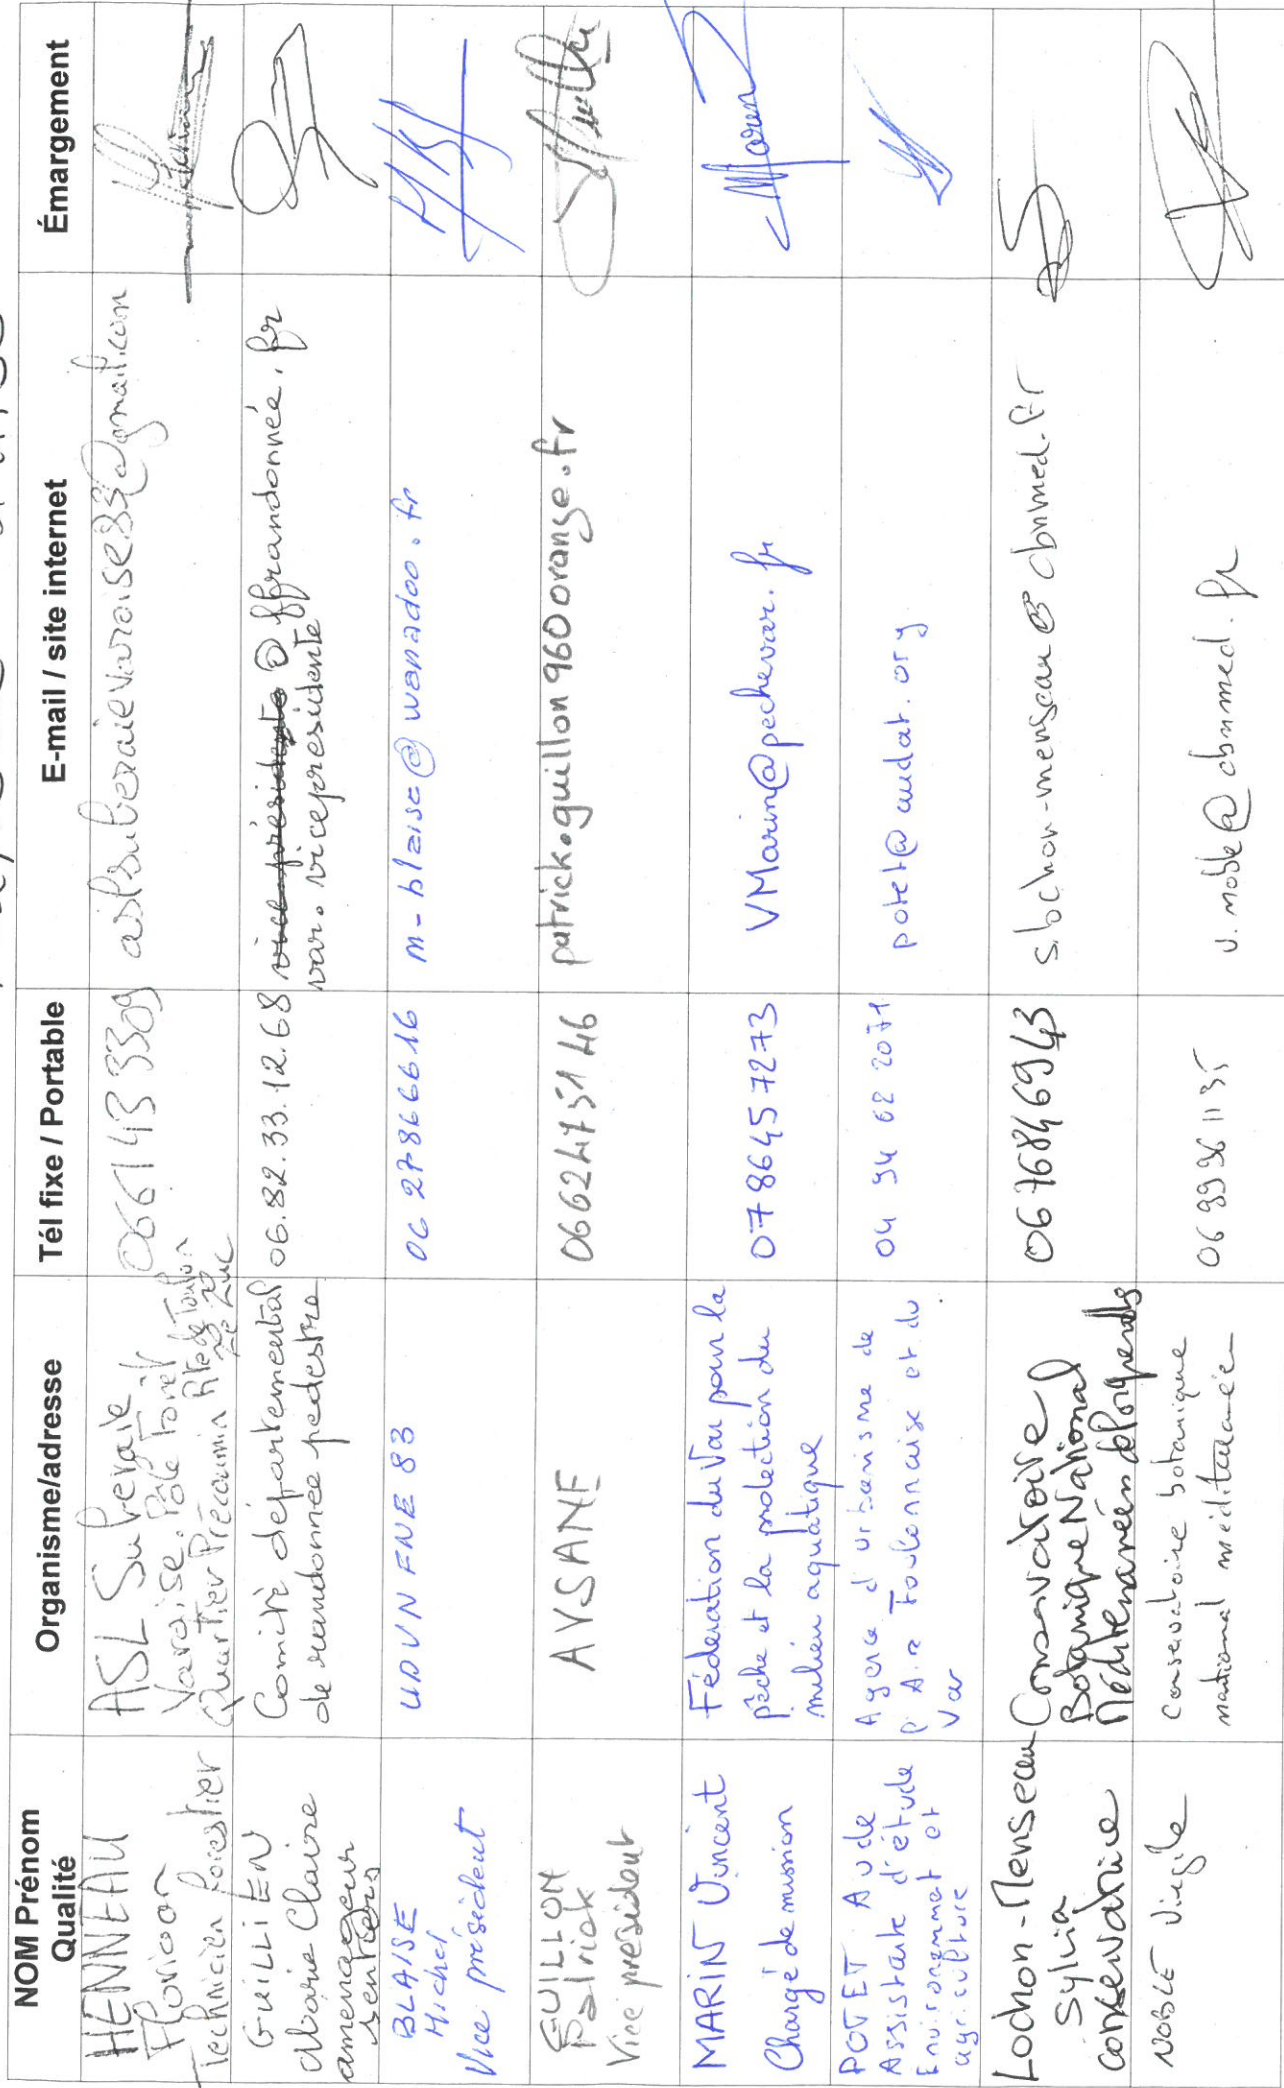 NOM Prénom
Qualité
Organisme/adresse
Tél fixe / Portable
E-mail / site internet
Émargement
HENNEAU
Florian
Technicien forestier
ASL Suberaie
Varoise. Pôle Forêt
Quartier Précoumin Rte de Toulon
Le Luc
0661433309
aslsuberaievaroise83@gmail.com
GUILLIEN
Marie Claire
amenageur
sentiers
Comité départemental
de randonnée pedestre
06.82.33.12.68
vice présidente @ ffrandonnée.fr
var. vicepresidente
BLAISE
Michel
Vice président
UDVN FNE 83
06 27866616
m-blaise@wanadoo.fr
GUILLON
Patrick
Vice president
AVSANE
0662475146
patrick.guillon960orange.fr
MARIN Vincent
Chargé de mission
Féderation du Var pour la
pêche et la protection du
milieu aquatique
0786457273
VMarin@pechevar.fr
Marin
POTET Aude
Assistante d'étude
Environnement et
agriculture
Agence d'urbanisme de
l'Aire Toulonnaise et du
Var
04 94 62 2071
potet@audat.org
Lochon-Menseau
Sylvia
conservatrice
Conservatoire
Botanique National
Méditerranéen de Porquerolles
0676846943
s.lochon-menseau@cbnmed.fr
NOBLE Virgile
Conservatoire botanique
national méditerranée
06 99961135
v.noble@cbnmed.fr